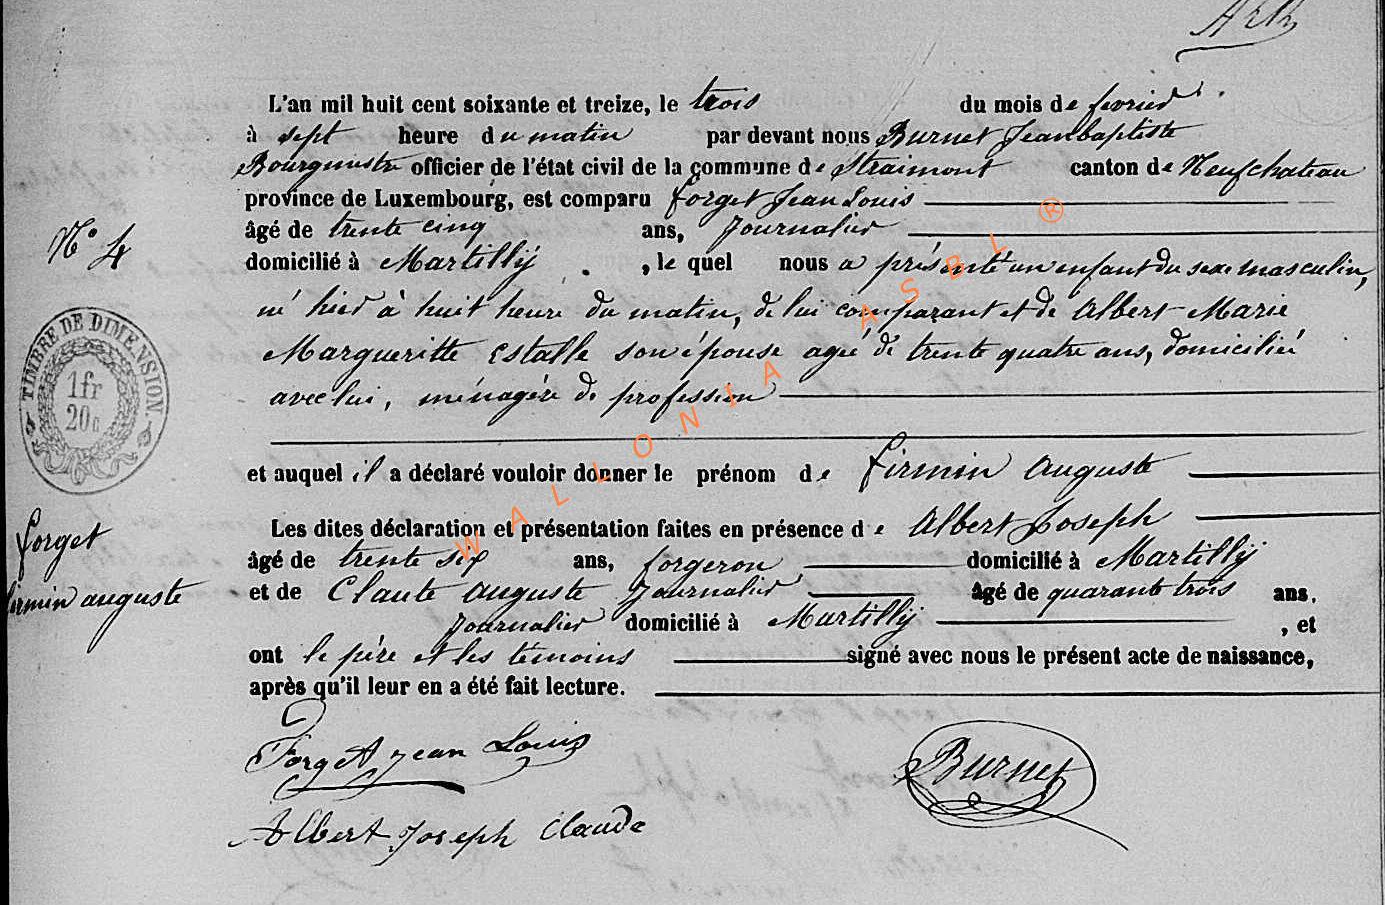 L'an mil huit cent soixante et treize, le trois du mois de fevrier
à sept heure du matin par devant nous Burnet Jean baptiste
Bourgmestre officier de l'état civil de la commune de Straimont canton de Neufchateau
province de Luxembourg, est comparu forget Jean Louis
N° 4
âgé de trente cinq ans, Journalier
domicilié à Martilly , le quel nous a présenté un enfant du sexe masculin,
né hier à huit heure du matin, de lui comparant et de Albert Marie
Margueritte Estalle son épouse ageé de trente quatre ans, domiciliée
avec lui, ménagére de profession
TIMBRE DE DIMENSION.
1fr
20c
et auquel il a déclaré vouloir donner le prénom de firmin auguste
forget
firmin auguste
Les dites déclaration et présentation faites en présence de Albert Joseph
âgé de trente six ans, forgeron domicilié à Martilly
et de Claude auguste Journalier âgé de quarante trois ans,
Journalier domicilié à Martilly , et
ont le père et les témoins signé avec nous le présent acte de naissance,
après qu'il leur en a été fait lecture.
Forget jean Louis
Burnet
Albert Joseph Claude
WALLONIA ASBL ®